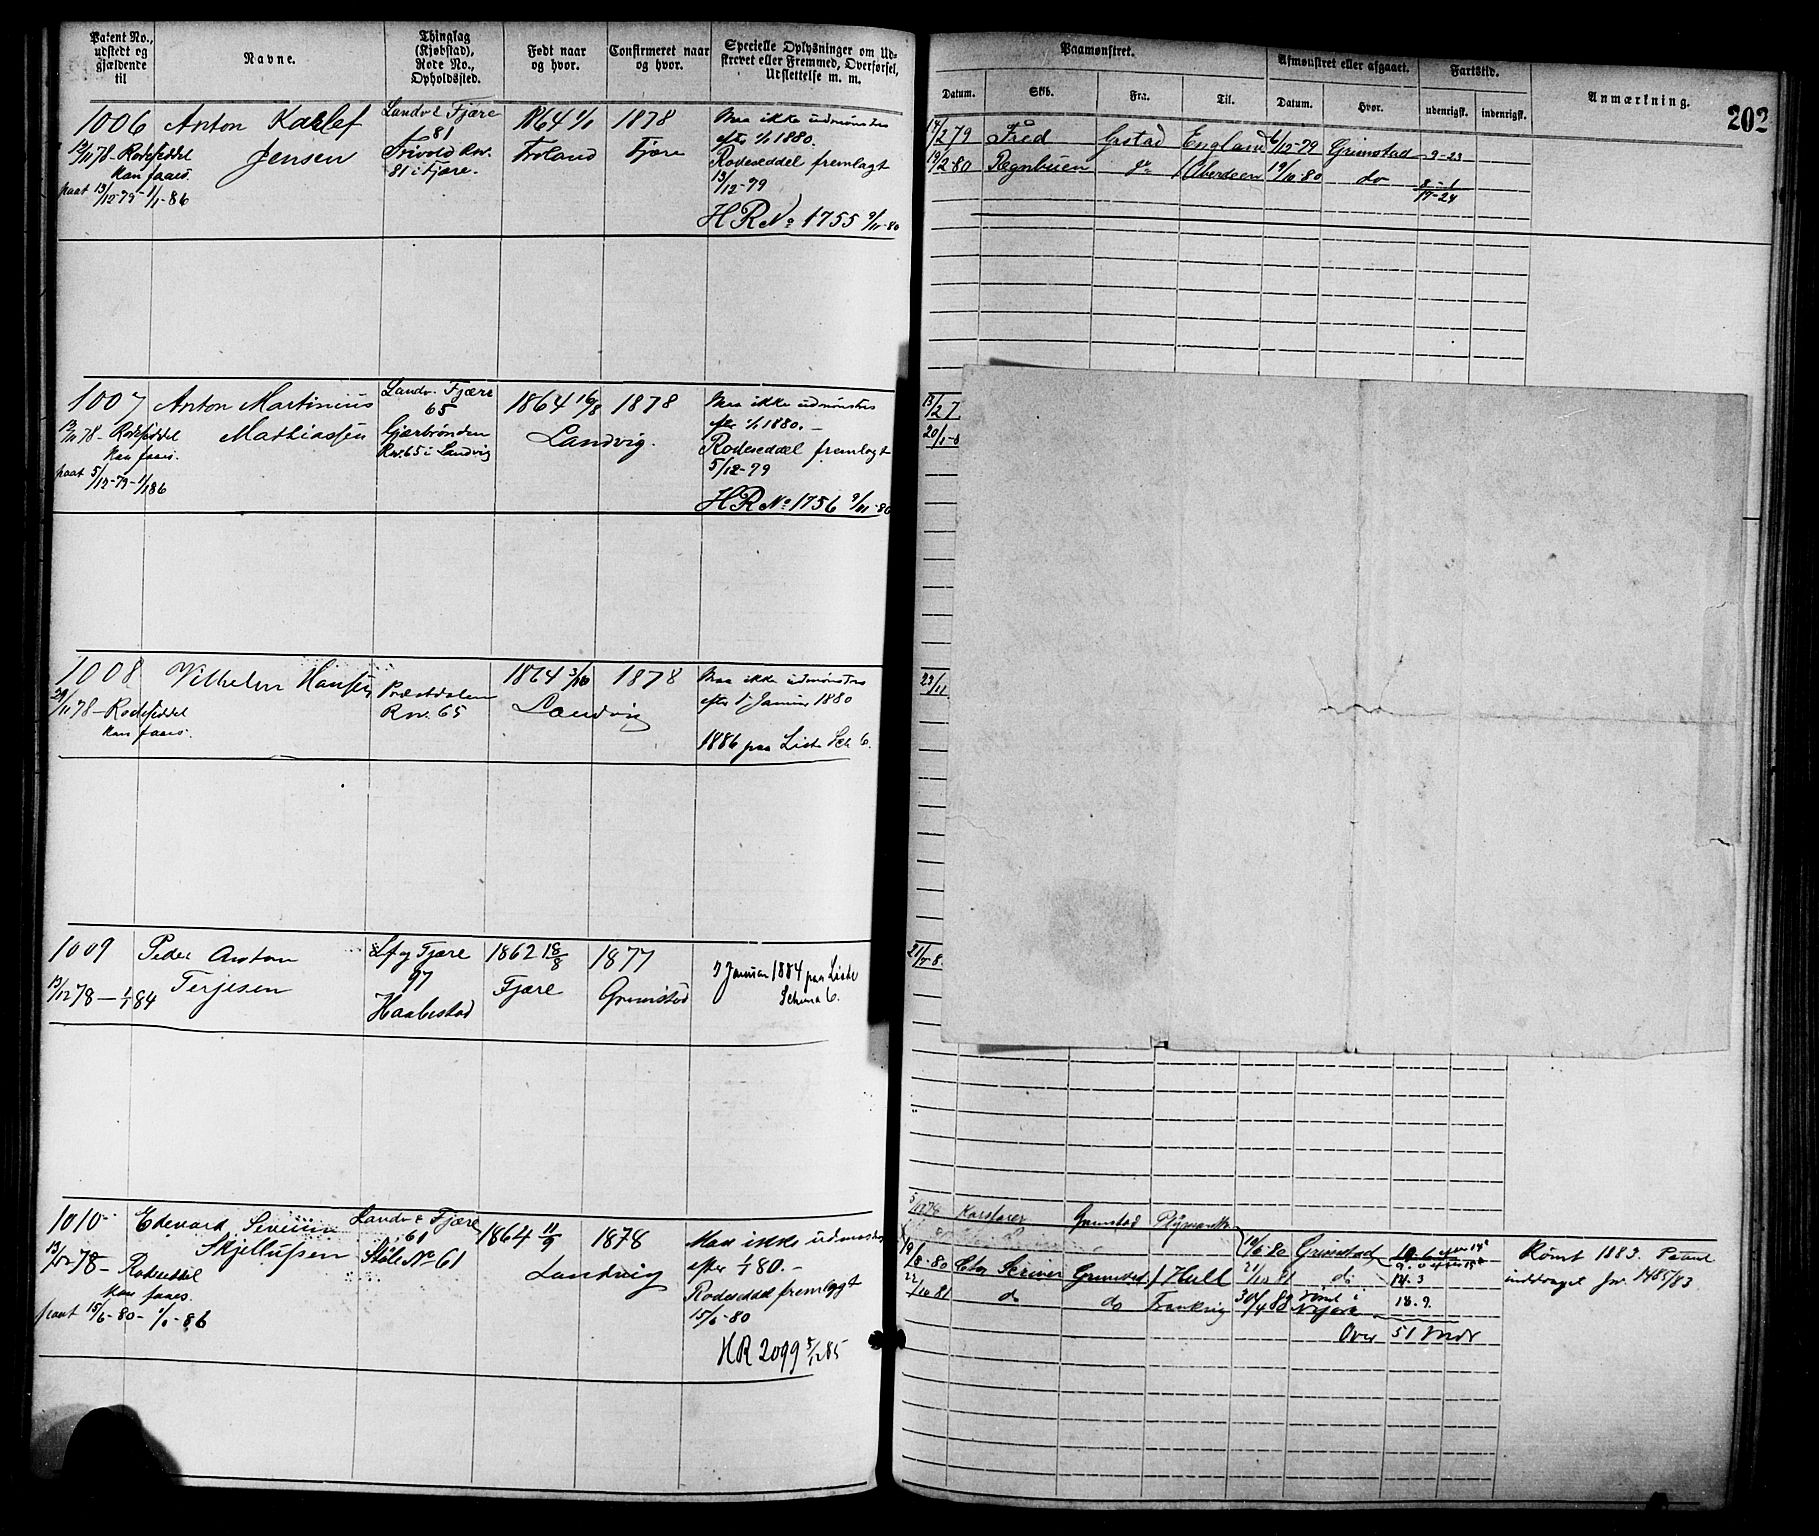 Patent No.,
udstedt og
gjældende
til
Navne.
Thinglag
(Kjøbstad),
Rode No.,
Opholdssted.
Født naar
og hvor.
Confirmeret naar
og hvor.
Specielle Oplysninger om Ud-
skrevet eller Fremmed, Overførsel,
Udslettelse m. m.
Paamønstret.
Afmønstret eller afgaaet.
Fartstid.
Anmærkning.
Datum.
Skib.
Fra.
Til.
Datum.
Hvor.
udenrigsk.
indenrigsk.
202
1006 Anton Karlef
Jensen
12/11 78 - Rodeseddel
kan faaes.
paat 13/12-79-1/1-86
Landv & Fjære
81
Rnr.
81 i Fjære.
1864 1/1
Froland
1878
Fjære
Maa ikke udmønstres
efter 1/1 1880.
Rodeseddel fremlagt
13/12-79
HR No 1755 9/11-80
14/2 79 Fred Gstad England 6/12-79 Grimstad 9-23
14/2-80 Regnbuen do Aberdeen 19/10-80 do 8-1
17-24
1007 Anton Martinius
Mathiassen
12/11 78 - Rodeseddel
kan faaes.
paat 5/12-79-1/1 86
Landv. Fjære
65
Gjærbrønden
Rnr. 65 i Landvig
1864 16/8
Landvig.
1878
Maa ikke udmønstres
efter 1/1 1880. -
Rodeseddel fremlagt
5/12-79
HR No 1756 9/11-80
13/2 7
20/1-8
1008 Vilhelm Hansen
29/11 78 - Rodeseddel
kan faaes.
Præstdalen
Rnr. 65
1864 3/10
Landvig
1878
Maa ikke udmønstres
efter 1 Januar 1880
1886 paa Liste Sch 6.
23/11
1009 Peder Anton
Terjesen
13/12 78 - 1/1 84
Lv og Fjære
97
Haabestad
1862 18/8
Fjære
1877
Grimstad
1 Januar 1884 paa Liste
Schema 6.
1010 Edevard Severin
Skjellufsen
13/12 78 - Rodeseddel
kan faaes.
paat 15/6-80-1/1-86
Landv & Fjære
61
Støle No 61
1864 11/9
Landvig
1878
Maa ikke udmønstres
efter 1/1 80. -
Rodeseddel fremlagt
15/6-80
HR 2099 5/12 85
5/12 78 Grimstad Plymouth
14/6-80 Grimstad 10-6
19/8-80 Grimstad Hull 21/10 81 do 14.3
22/10 81 do do 30/4 83 18.9.
Over 51 Mdr
Rømt 1883. Patent
inddraget Jnr. 1485/83